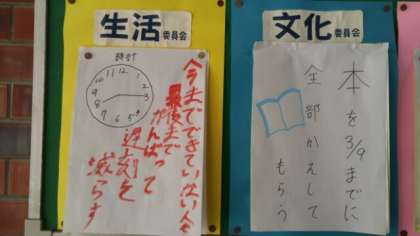 生活委員会
時計
12
1
2
3
4
5
6
7
8
9
10
11
今までできていない人も
最後まで
がんばって
遅刻を
減らす
文化委員会
本を3/9までに
全部かえして
もらう